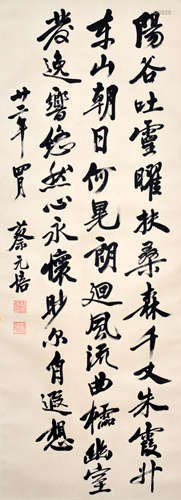 陽谷吐靈曜扶桑森千丈朱霞升
東山朝日何晃朗迴風流曲櫺幽室
發逸響悠然心永懷眇尔自遐想
廿二年四月 蔡元培